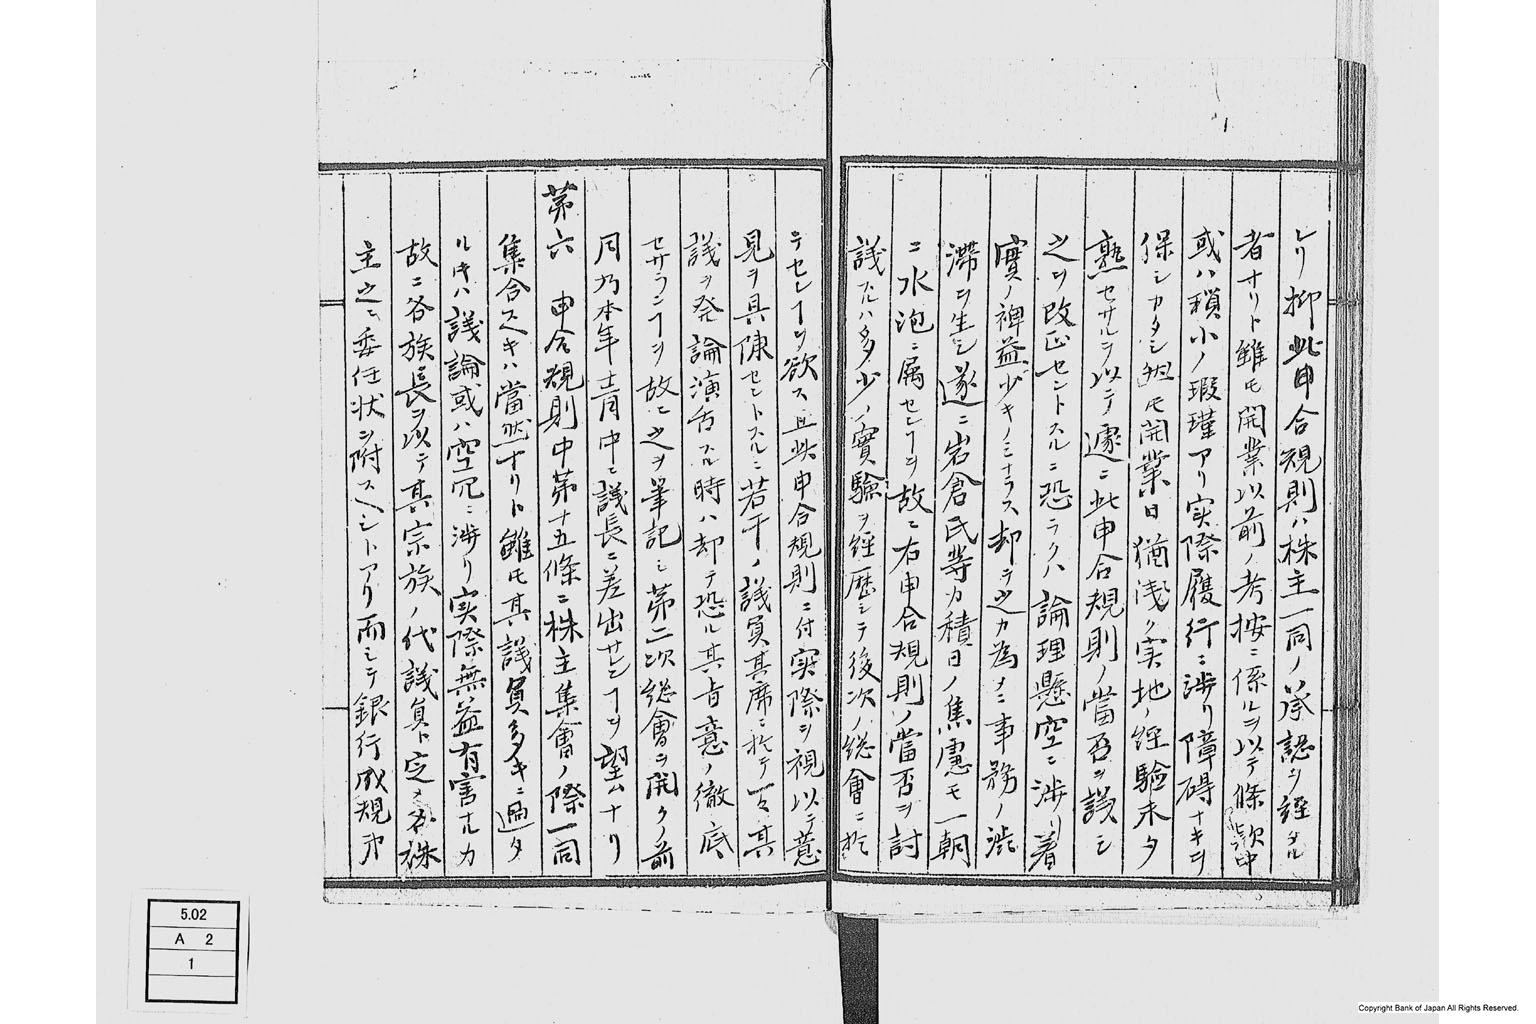 レリ抑此申合規則ハ株主一同ノ承認ヲ経タル
者ナリト雖モ開業以前ノ考按ニ係ルヲ以テ條款中
或ハ瑣小ノ瑕瑾アリ実際履行ニ渉リ障碍ナキヲ
保シカタシ然モ開業日猶浅ク実地ノ経験未タ
熟セサルヲ以テ遽ニ此申合規則ノ當否ヲ議シ
之ヲ改正セントスルニ恐ラクハ論理懸空ニ渉リ着
實ノ裨益少キノミナラス却テ之カ為メニ事務ノ渋
滞ヲ生シ遂ニ岩倉氏等カ積日ノ焦慮モ一朝
ニ水泡ニ属セン﹁ヲ故ニ右申合規則ノ當否ヲ討
議スルハ多少ノ實驗ヲ経歴シテ後次ノ総會ニ於
テセン﹁ヲ欲ス且此申合規則ニ付実際ヲ視以テ意
見ヲ具陳セントスルニ若干ノ議員其席ニ於テ一々其
議ヲ発論演舌スル時ハ却テ恐ル其旨意ノ徹底
セサラン﹁ヲ故ニ之ヲ筆記シ第二次総會ヲ開クノ前
月乃本年十二月中ニ議長ニ差出サレン﹁ヲ望ムナリ
第六 申合規則中第十五條ニ株主集會ノ際一同
集合スヘキハ當然ナリト雖モ其議員多キニ過タ
ルキハ議論或ハ空冗ニ渉リ実際無益有害ナルカ
故ニ各族長ヲ以テ其宗族ノ代議員ト定メ各株
主之ニ委任状ヲ附スヘシトアリ而シテ銀行成規第
5.02
A 2
1
Copyright Bank of Japan All Rights Reserved.